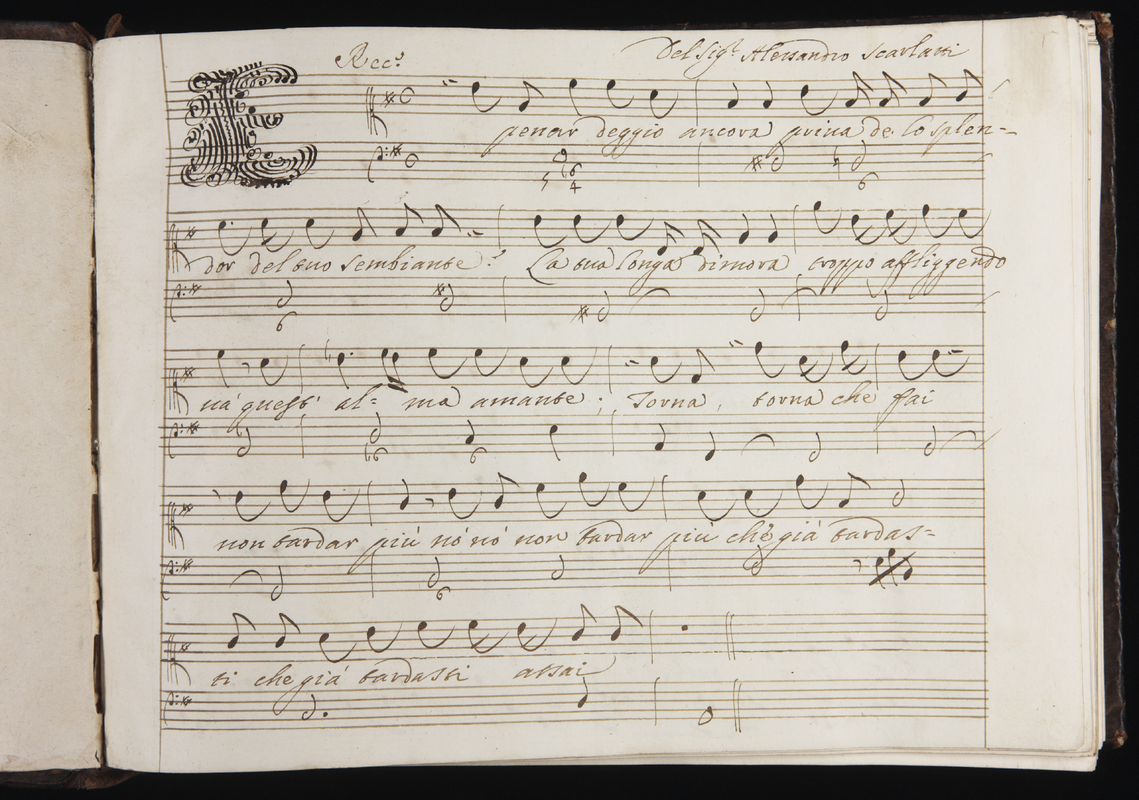 Rec.º Del Sig.r Alessandro Scarlatti
E penar deggio ancora priva de lo splen-
dor del tuo sembiante? La tua longa dimora troppo affliggendo
và quest' al= ma amante; Torna, torna che fai
non tardar più nò nò non tardar più che già tardas=
ti che già tardasti assai